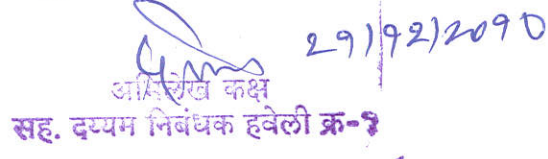 २१/१२/२०१०
अभिलेख कक्ष
सह. दय्यम निबंधक हवेली क्र-